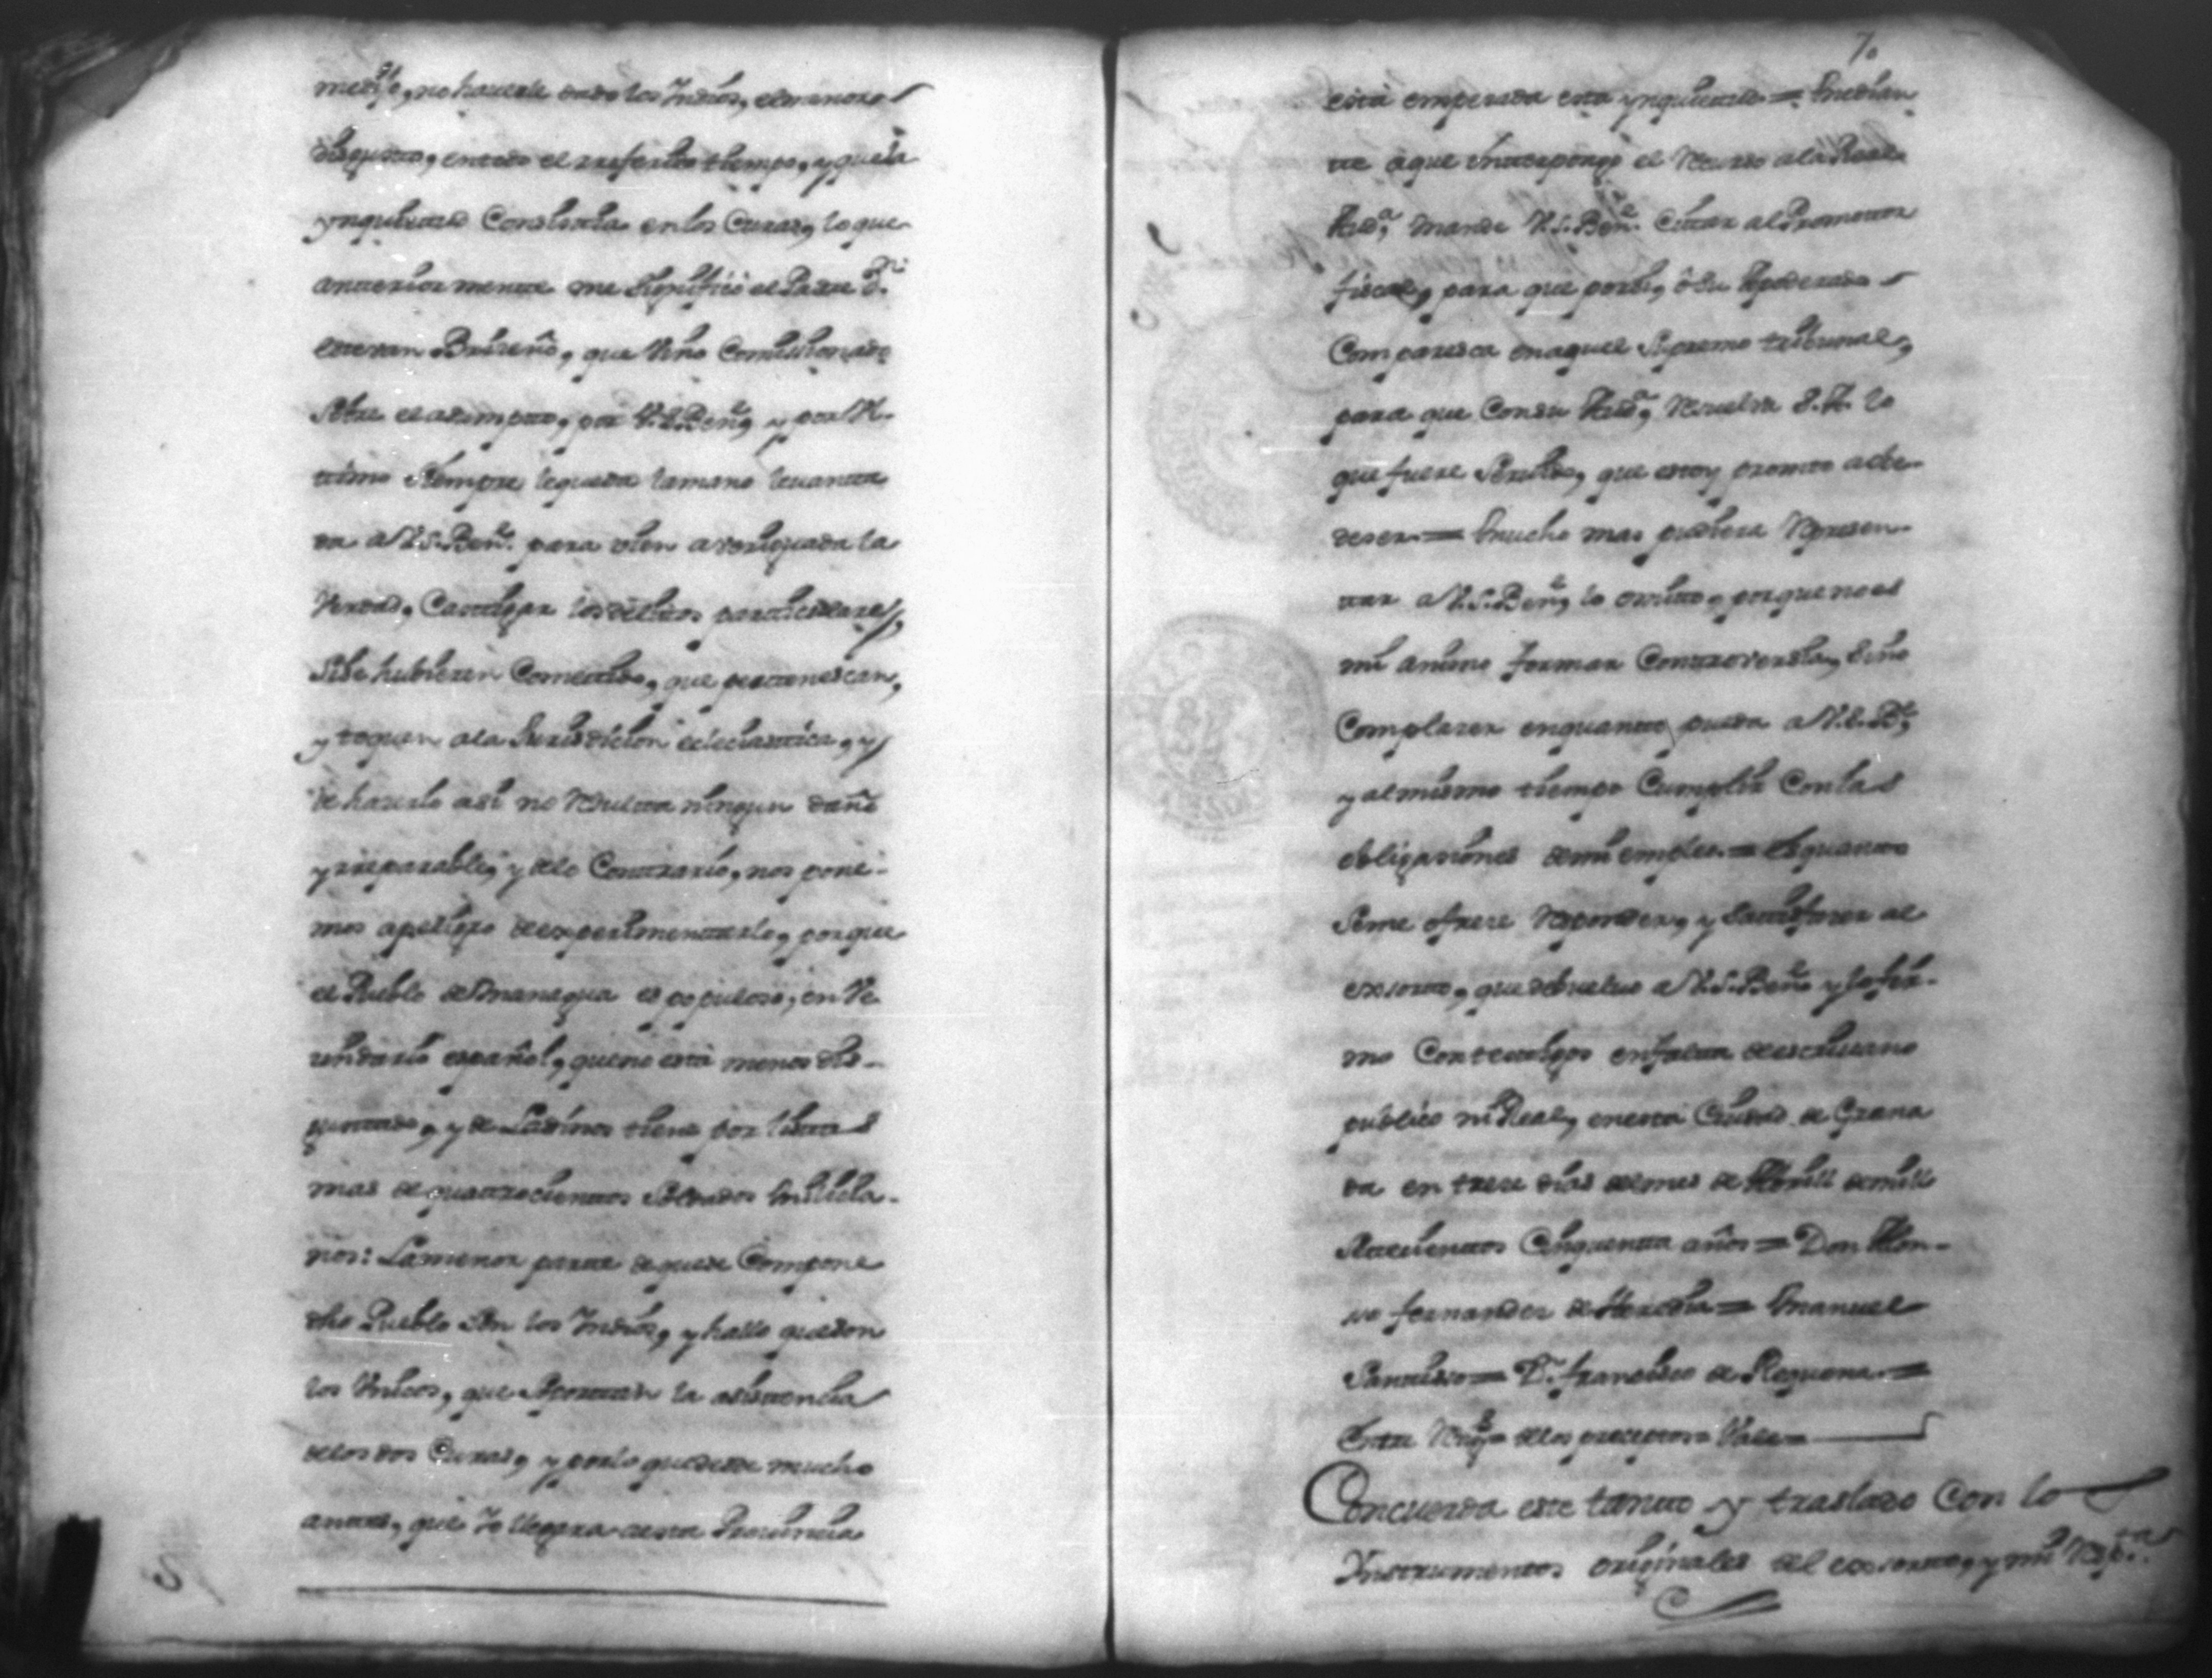 no haverle dado los Indios, el menor
disgusto, en todo el rreferido tiempo, y que la
ynquietud Consistia en los Curas, lo que
anteriormente me Significó el Padre Dn.
estevan Briseño, que Vino Comisionado
Sobre el asumpto, por V.S.Bene, y por Ul-
timo Siempre le queda la mano levanta
da a V.S.Bene. para vien averiguada la
Verdad, Castigar los delitos particulares,
Si Se hubieren Cometido, que pertenescan,
y toquen a la Jurisdicion eclesiastica, y
de hacerlo asi no Resulta ningun daño
yrreparable, y delo Contrario, nos pone-
mos apeligro de experimentarlo, por que
el Pueblo de Managua es populoso, en Ve
cindario español, que no está menos dis-
gustado, y de Ladinos tiene por listas
mas de quattrocientos Soldados Milicia-
nos: La menor parte de que Se Compone
dho Pueblo Son los Indios, y hallo que Son
los Unicos, que Soportan la asistencia
de los dos Curas, y por lo que desde mucho
antes, que Yo llegara a esta Provincia
70
está empesada esta ynquietud = Median
te aque Interpongo el Recurso ala Real
Auda, mande V.S.Bene. Citar al Promotor
fiscal, para que por Si, ó Su Apoderado
Comparesca en aquel Supremo tribunal,
para que Con Su Auda, Resuelva S.A. lo
que fuere Servido, que estoy promto a obe-
deser = Mucho mas pudiera Represen-
tar a V.S.Bene, lo omito, por que no es
mi animo formar Controversia, Sino
Complacer en quanto pueda a V.S.
y al mismo tiempo Cumplir Con las
obligasiones de mi empleo = Es quanto
Seme ofrece Responder, y Satisfacer al
exsorto, que debuelvo a V.S.Bene y lo fir-
mo Con testigos en falta de escrivano
publico ni Real, en esta Ciudad de Grana
da en trese dias del mes de Abrill de mill
Setecientos Cinquenta años = Don Alon-
so fernandes de Heredia = Manuel
= Dn. francisco de Requena =
Entre Rengs = delos preceptos = Vale =
Concuerda este tanto y traslado Con lo
Instrumentos originales del exsorto, y mi Resp.ta